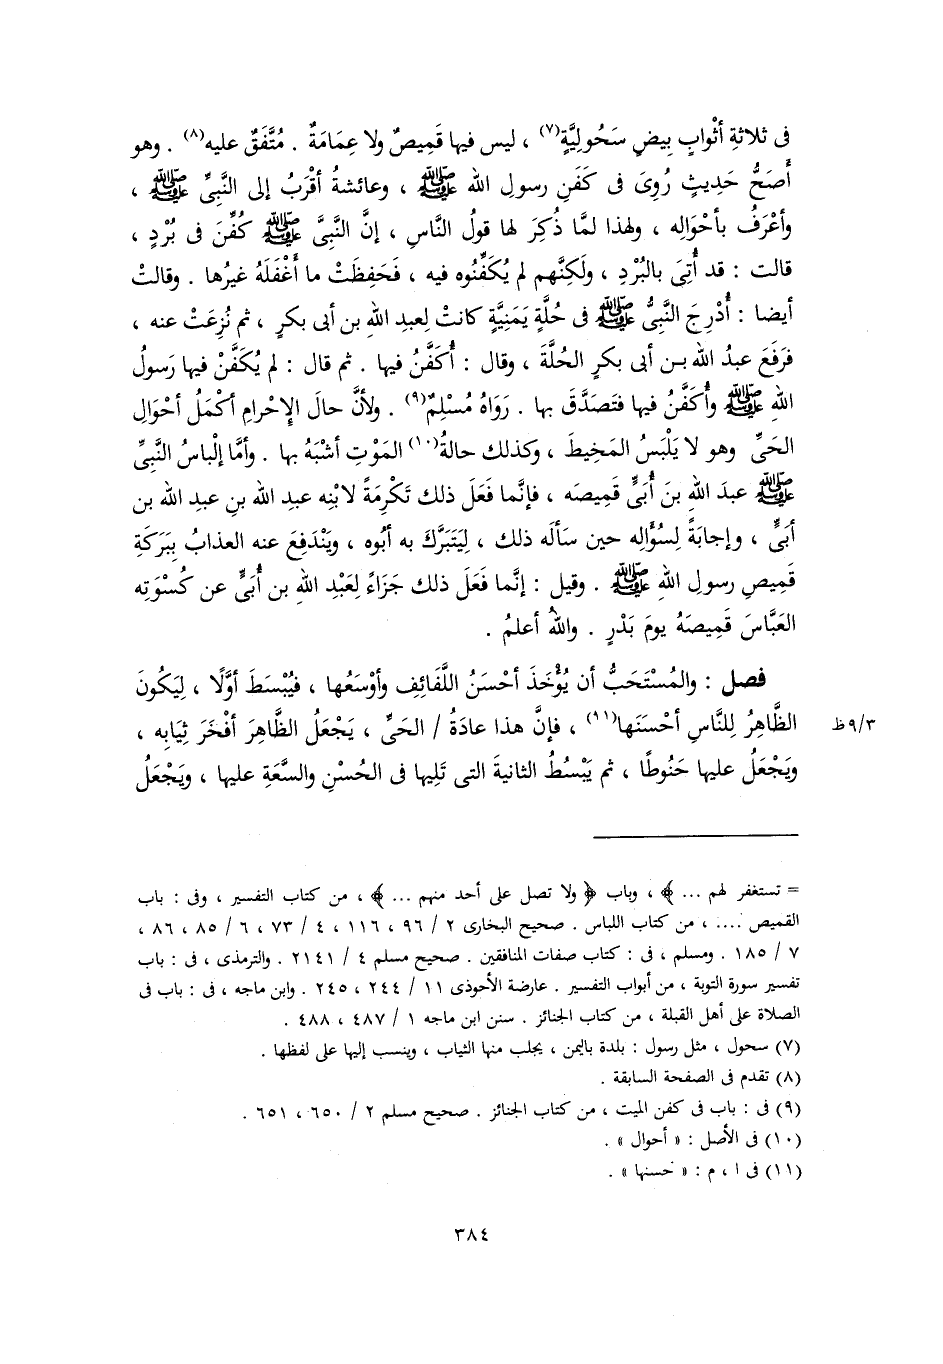 فى ثلاثةِ أثْوابٍ بِيضٍ سَحُولِيَّةٍ(٧) ، ليس فيها قَمِيصٌ ولا عِمَامَةٌ . مُتَّفَقٌ عليه(٨) . وهو
أَصَحُّ حَدِيثٍ رُوِىَ فى كَفَنِ رسولِ الله ﷺ ، وعائشةُ أقْرَبُ إلى النَّبِىِّ ﷺ ،
وأعْرَفُ بأحْوَالِه ، ولهذا لمَّا ذُكِرَ لها قولُ النَّاسِ ، إنَّ النَّبِىَّ ﷺ كُفِّنَ فى بُرْدٍ ،
قالت : قد أُتِىَ بالبُرْدِ ، ولَكِنَّهم لم يُكَفِّنُوه فيه ، فَحَفِظَتْ ما أَغْفَلَهُ غيرُها . وقالتْ
أيضا : أُدْرِجَ النَّبِىُّ ﷺ فى حُلَّةٍ يَمَنِيَّةٍ كانتْ لِعبدِ اللهِ بن أبى بكرٍ ، ثم نُزِعَتْ عنه ،
فرَفَعَ عبدُ الله بـن أبى بكرٍ الحُلَّةَ ، وقال : أُكَفَّنُ فيها . ثم قال : لم يُكَفَّنْ فيها رَسولُ
اللهِ ﷺ وأُكَفَّنُ فيها فتَصَدَّقَ بها . رَوَاهُ مُسْلِمٌ(٩) . ولأنَّ حالَ الإِحْرامِ أكْمَلُ أحْوَالِ
الحَىِّ وهو لا يَلْبَسُ المَخِيطَ ، وكذلك حالةُ(١٠) المَوْتِ أشْبَهُ بها . وأمَّا إلْباسُ النَّبِىِّ
ﷺ عبدَ اللهِ بنَ أُبَىٍّ قَمِيصَه ، فإنَّما فَعَلَ ذلك تَكْرِمَةً لابْنِه عبدِ الله بنِ عبدِ الله بن
أبَىٍّ ، وإجابَةً لِسُؤَالِه حين سَألَه ذلك ، لِيَتَبَرَّكَ به أبُوه ، ويَنْدَفِعَ عنه العذابُ بِبَرَكَةِ
قَمِيصِ رسولِ اللهِ ﷺ . وقيل : إنَّما فَعَلَ ذلك جَزَاءً لِعَبْدِ اللهِ بن أُبَىٍّ عن كُسْوَتِه
العَبَّاسَ قَمِيصَهُ يومَ بَدْرٍ . واللهُ أعلمُ .
فصل : والمُسْتَحَبُّ أن يُؤْخَذَ أحْسَنُ اللَّفَائِفِ وأوْسَعُها ، فيُبْسَطَ أوَّلًا ، لِيَكُونَ
الظَّاهِرُ لِلنَّاسِ أحْسَنَها(١١) ، فإنَّ هذا عادَةُ / الحَىِّ ، يَجْعَلُ الظَّاهِرَ أفْخَرَ ثِيَابِه ،
٩/٣ظ
ويَجْعَلُ عليها حَنُوطًا ، ثم يَبْسُطُ الثانيةَ التى تَلِيها فى الحُسْنِ والسَّعَةِ عليها ، ويَجْعَلُ
= تستغفر لهم ... ﴾ ، وباب ﴿ ولا تصل على أحد منهم ... ﴾ ، من كتاب التفسير ، وفى : باب
القميص .... ، من كتاب اللباس . صحيح البخارى ٢ / ٩٦ ، ١١٦ ، ٤ / ٧٣ ، ٦ / ٨٥ ، ٨٦ ،
٧ / ١٨٥ . ومسلم ، فى : كتاب صفات المنافقين . صحيح مسلم ٤ / ٢١٤١ . والترمذى ، فى : باب
تفسير سورة التوبة ، من أبواب التفسير . عارضة الأحوذى ١١ / ٢٤٤ ، ٢٤٥ . وابن ماجه ، فى : باب فى
الصلاة على أهل القبلة ، من كتاب الجنائز . سنن ابن ماجه ١ / ٤٨٧ ، ٤٨٨ .
(٧) سحول ، مثل رسول : بلدة باليمن ، يجلب منها الثياب ، وينسب إليها على لفظها .
(٨) تقدم فى الصفحة السابقة .
(٩) فى : باب فى كفن الميت ، من كتاب الجنائز . صحيح مسلم ٢ / ٦٥٠ ، ٦٥١ .
(١٠) فى الأصل : « أحوال » .
(١١) فى ا ، م : « حسنها » .
٣٨٤